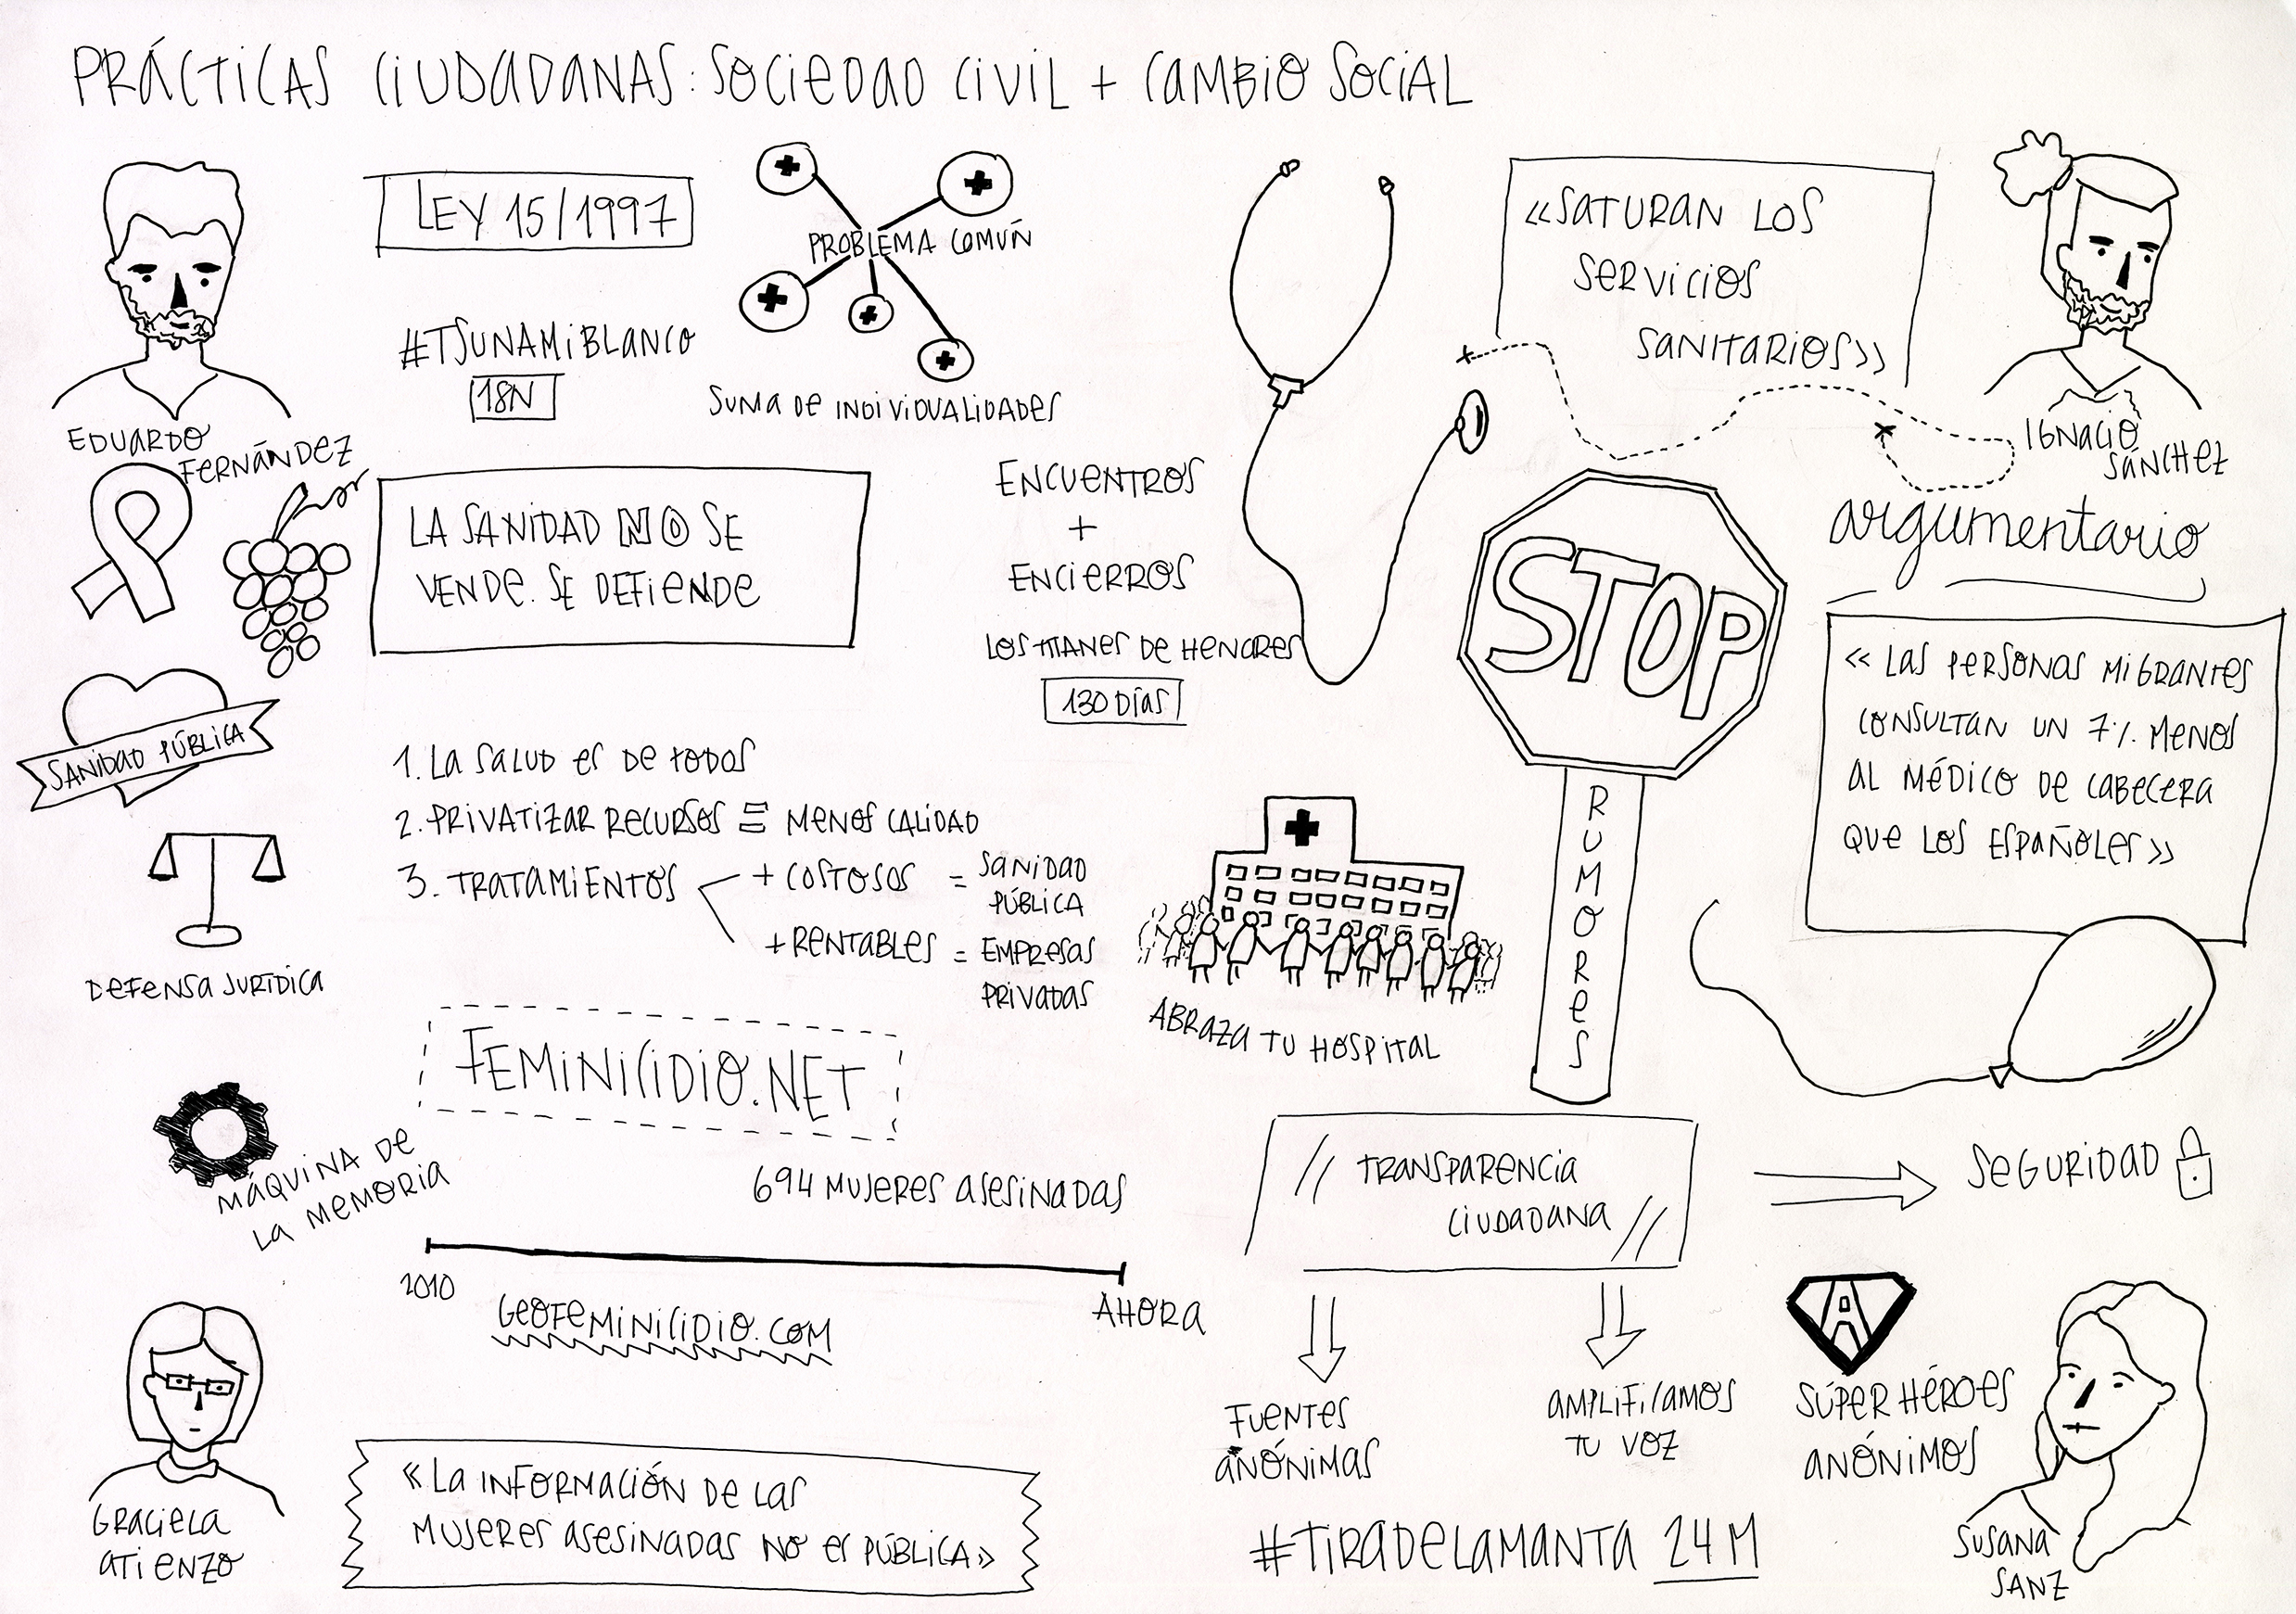 PRÁCTICAS CIUDADANAS: SOCIEDAD CIVIL + CAMBIO SOCIAL
EDUARDO
FERNÁNDEZ
LEY 15/1997
#TSUNAMIBLANCO
18N
PROBLEMA COMUÑ
SUMA DE INDIVIDUALIDADES
LA SANIDAD NO SE
VENDE. SE DEFIENDE
ENCUENTROS
+
ENCIERROS
LOS TITANES DE HENARES
130 DÍAS
SANIDAD PÚBLICA
DEFENSA JURÍDICA
1. LA SALUD ES DE TODOS
2. PRIVATIZAR RECURSOS = MENOS CALIDAD
3. TRATAMIENTOS
+ COSTOSOS = SANIDAD
PÚBLICA
+ RENTABLES = EMPRESAS
PRIVADAS
ABRAZA TU HOSPITAL
«SATURAN LOS
SERVICIOS
SANITARIOS»
IGNACIO
SÁNCHEZ
argumentario
STOP
RUMORES
« LAS PERSONAS MIGRANTES
CONSULTAN UN 7% MENOS
AL MÉDICO DE CABECERA
QUE LOS ESPAÑOLES»
FEMINICIDIO.NET
MÁQUINA DE
LA MEMORIA
694 MUJERES ASESINADAS
2010
AHORA
GEOFEMINICIDIO.COM
GRACIELA
ATIENZO
«LA INFORMACIÓN DE LAS
MUJERES ASESINADAS NO ES PÚBLICA»
// TRANSPARENCIA
CIUDADANA //
SEGURIDAD
FUENTES
ANÓNIMAS
AMPLIFICAMOS
TU VOZ
A
SÚPER HÉROES
ANÓNIMOS
#TIRADELAMANTA 24M
SUSANA
SANZ